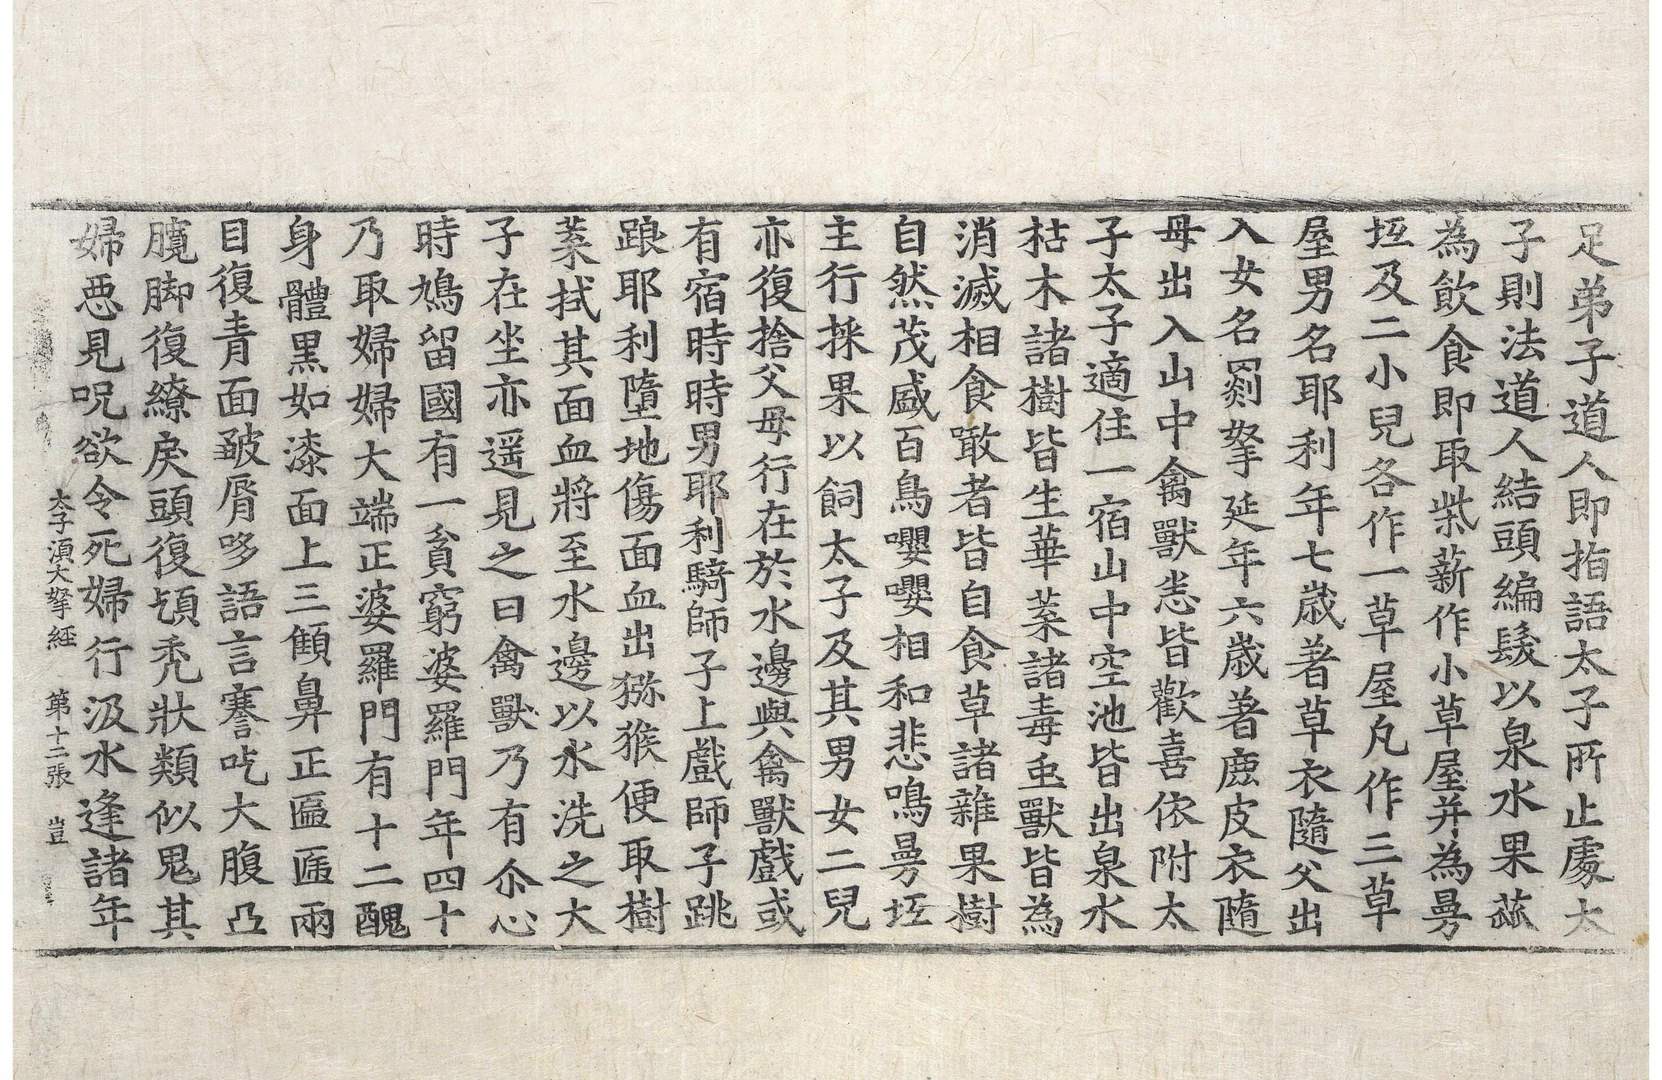 足弟子道人即指語太子所止處太
子則法道人結頭編髮以泉水果蓏
為飲食即取柴薪作小草屋并為曼
坻及二小兒各作一草屋凡作三草
屋男名耶利年七歲著草衣隨父出
入女名罽拏延年六歲著鹿皮衣隨
母出入山中禽獸恙皆歡喜依附太
子太子適住一宿山中空池皆出泉水
枯木諸樹皆生華葉諸毒䖝獸皆為
消滅相食噉者皆自食草諸雜果樹
自然茂盛百鳥嚶嚶相和悲鳴曼坻
主行採果以飼太子及其男女二兒
亦復捨父母行在於水邊與禽獸戲或
有宿時時男耶利騎師子上戲師子跳
踉耶利墮地傷面血出猕猴便取樹
葉拭其面血將至水邊以水洗之大
子在坐亦遥見之曰禽獸乃有尒心
時鳩留國有一貧窮婆羅門年四十
乃取婦婦大端正婆羅門有十二醜
身體黑如漆面上三顀鼻正匾㔸兩
目復青面皺脣哆語言謇吃大腹凸
臗脚復繚戾頭復頎禿狀類似鬼其
婦恶見呪欲令死婦行汲水逢諸年
太子湏大拏経　第十二張　豈